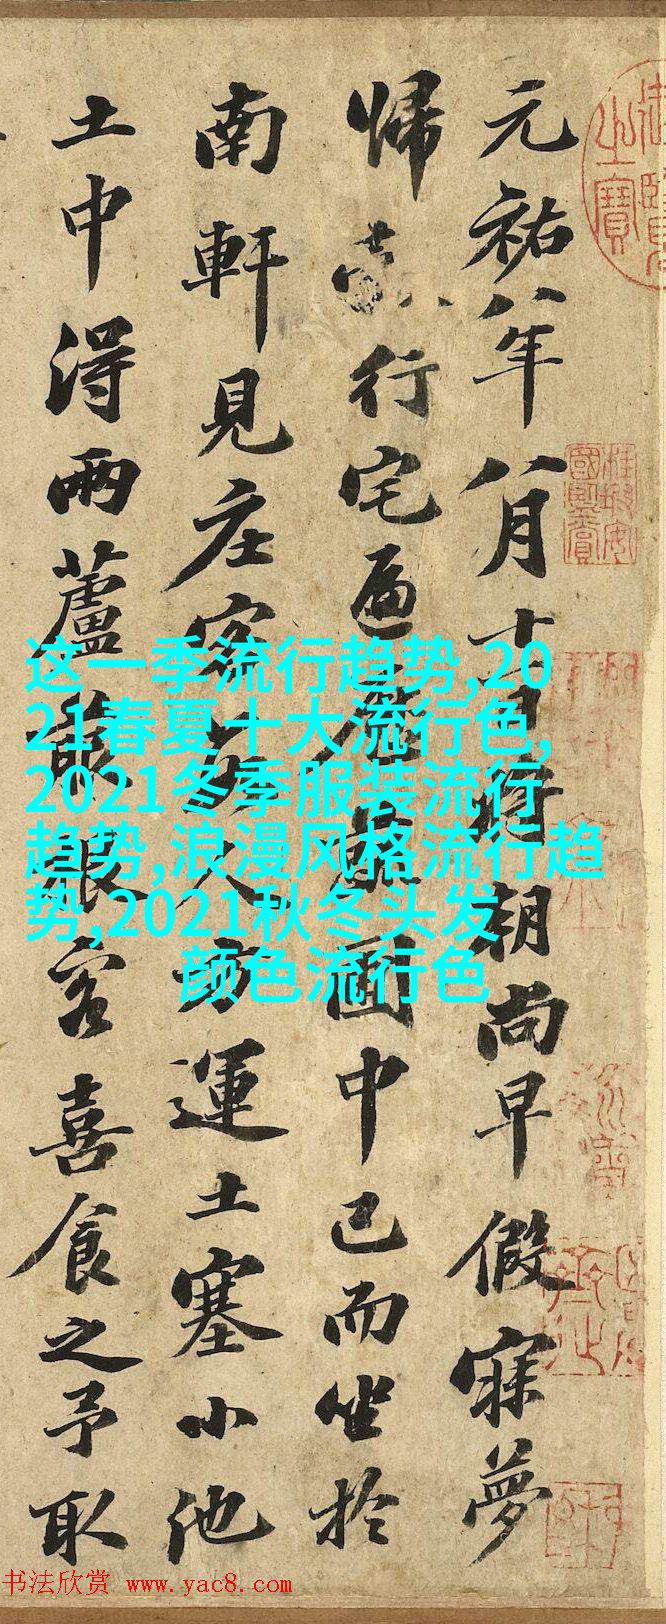 元祐八年八月十日將朝尚早假寐夢
歸行宅遍蔬圃中已而坐於
南軒見庄客數人方運土塞小池
土中得兩蘆菔根客喜食之予取
这一季流行趋势,20
21春夏十大流行色,
2021冬季服装流行
趋势,浪漫风格流行趋
势,2021秋冬头发
颜色流行色
书法欣赏 www.yac8.com